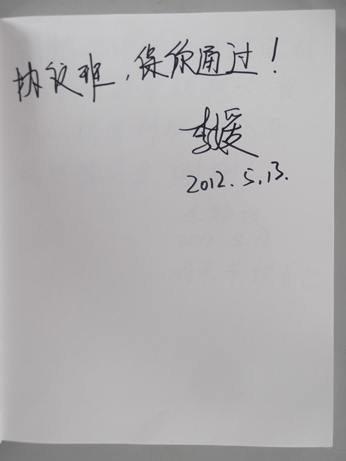 协议班，保你通过！
李媛
2012.5.13.